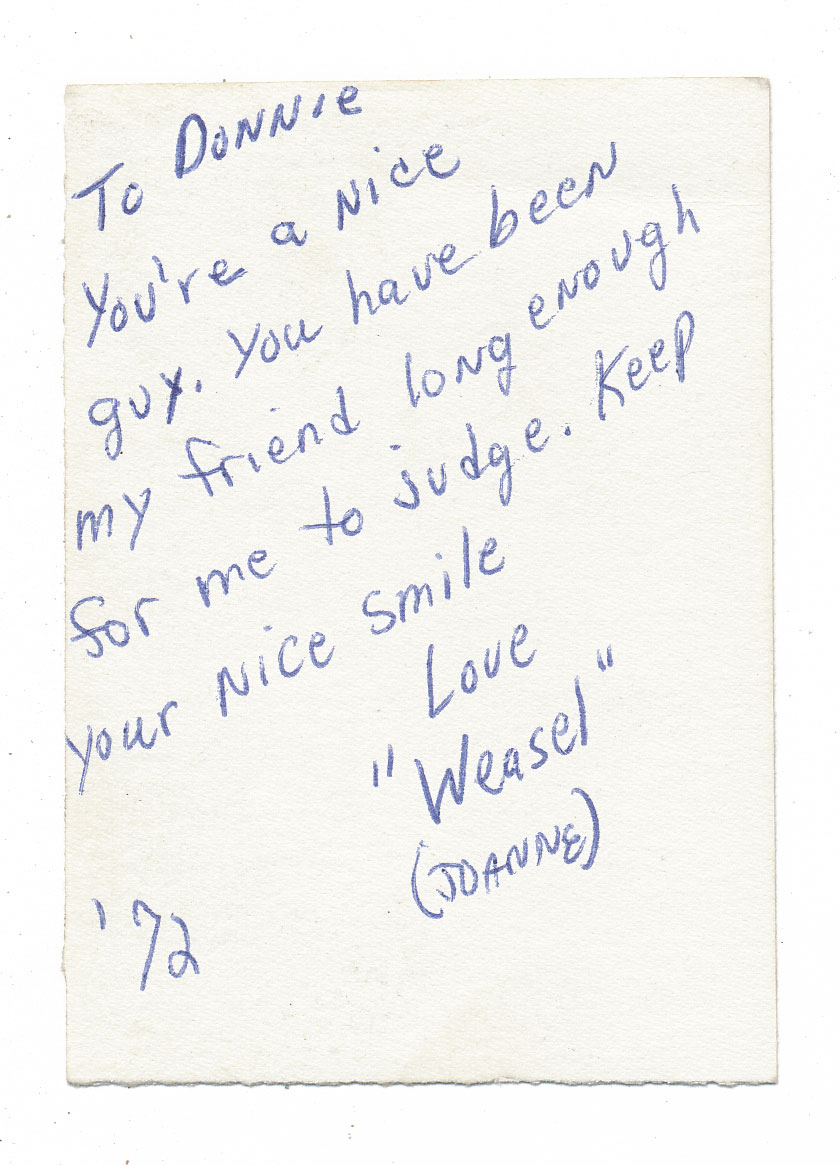 To Donnie
You're a nice
guy. You have been
my friend long enough
for me to judge. Keep
your nice smile
Love
"Weasel"
(JOANNE)
'72